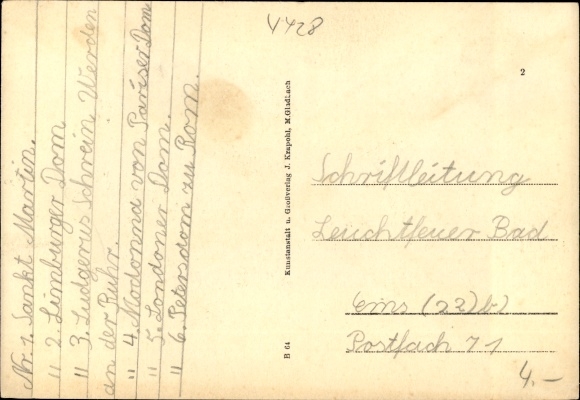 4428
Nr. 1. Sankt Martin.
" 2. Limburger Dom
" 3. Ludgerus Schrein Werden
an der Ruhr.
" 4. Madonna von Pariser Dom
" 5. Londoner Dom.
" 6. Petersdom zu Rom.
Kunstanstalt u. Großverlag J. Krapohl, M.Gladbach
B 64
2
Schriftleitung
Leuchtfeuer Bad
Ems (23)b)
Postfach 71
4.—